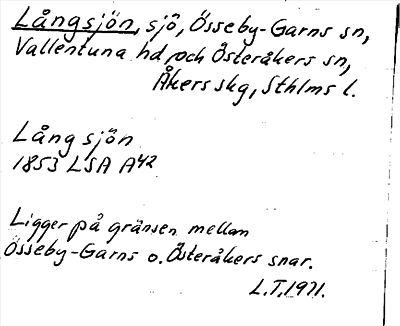 Långsjön, sjö, Össeby-Garns sn,
Vallentuna hd och Österåkers sn,
Åkers skg, Sthlms l.
Lång sjön
1853 LSA A42
Ligger på gränsen mellan
Össeby-Garns o. Österåkers snar.
L.T. 1971.